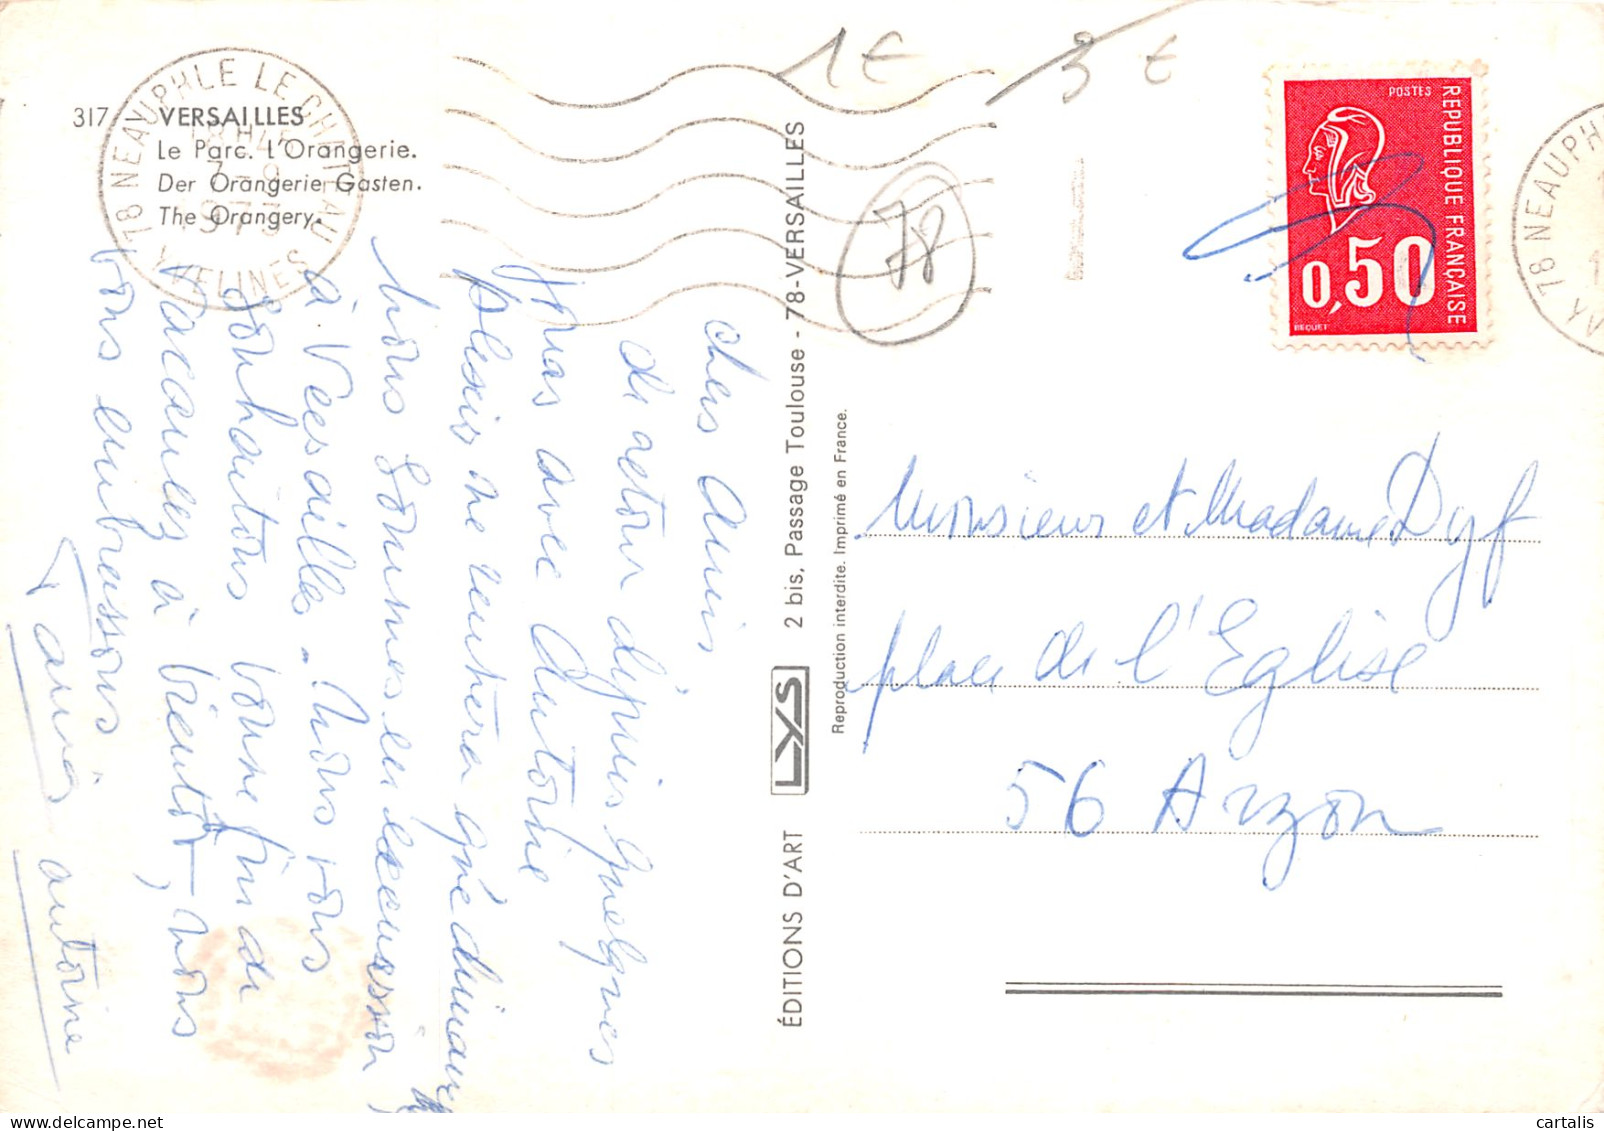 317 - VERSAILLES
Le Parc. L'Orangerie.
Der Orangerie Gasten.
The Orangery.
78 NEAUPHLE LE CHATEAU
18H45
7-9
1973
YVELINES
1€
3 €
78
POSTES
REPUBLIQUE FRANÇAISE
0,50
BEQUET
78 NEAUPH
chers Amis
de retour depuis quelques
jours avec Antoine
plesir ne rentrera que dimanche
nous sommes en excursion
à Versailles. Nous vous
souhaitons bonne fin de
vacances, à bientot, nous
vous embrassons
annie antoine
ÉDITIONS D'ART LYS 2 bis, Passage Toulouse - 78-VERSAILLES
Reproduction interdite. Imprimé en France.
Monsieur et Madame Dyf
place de l'Eglise
56 Arzon
cartalis delcampe.net